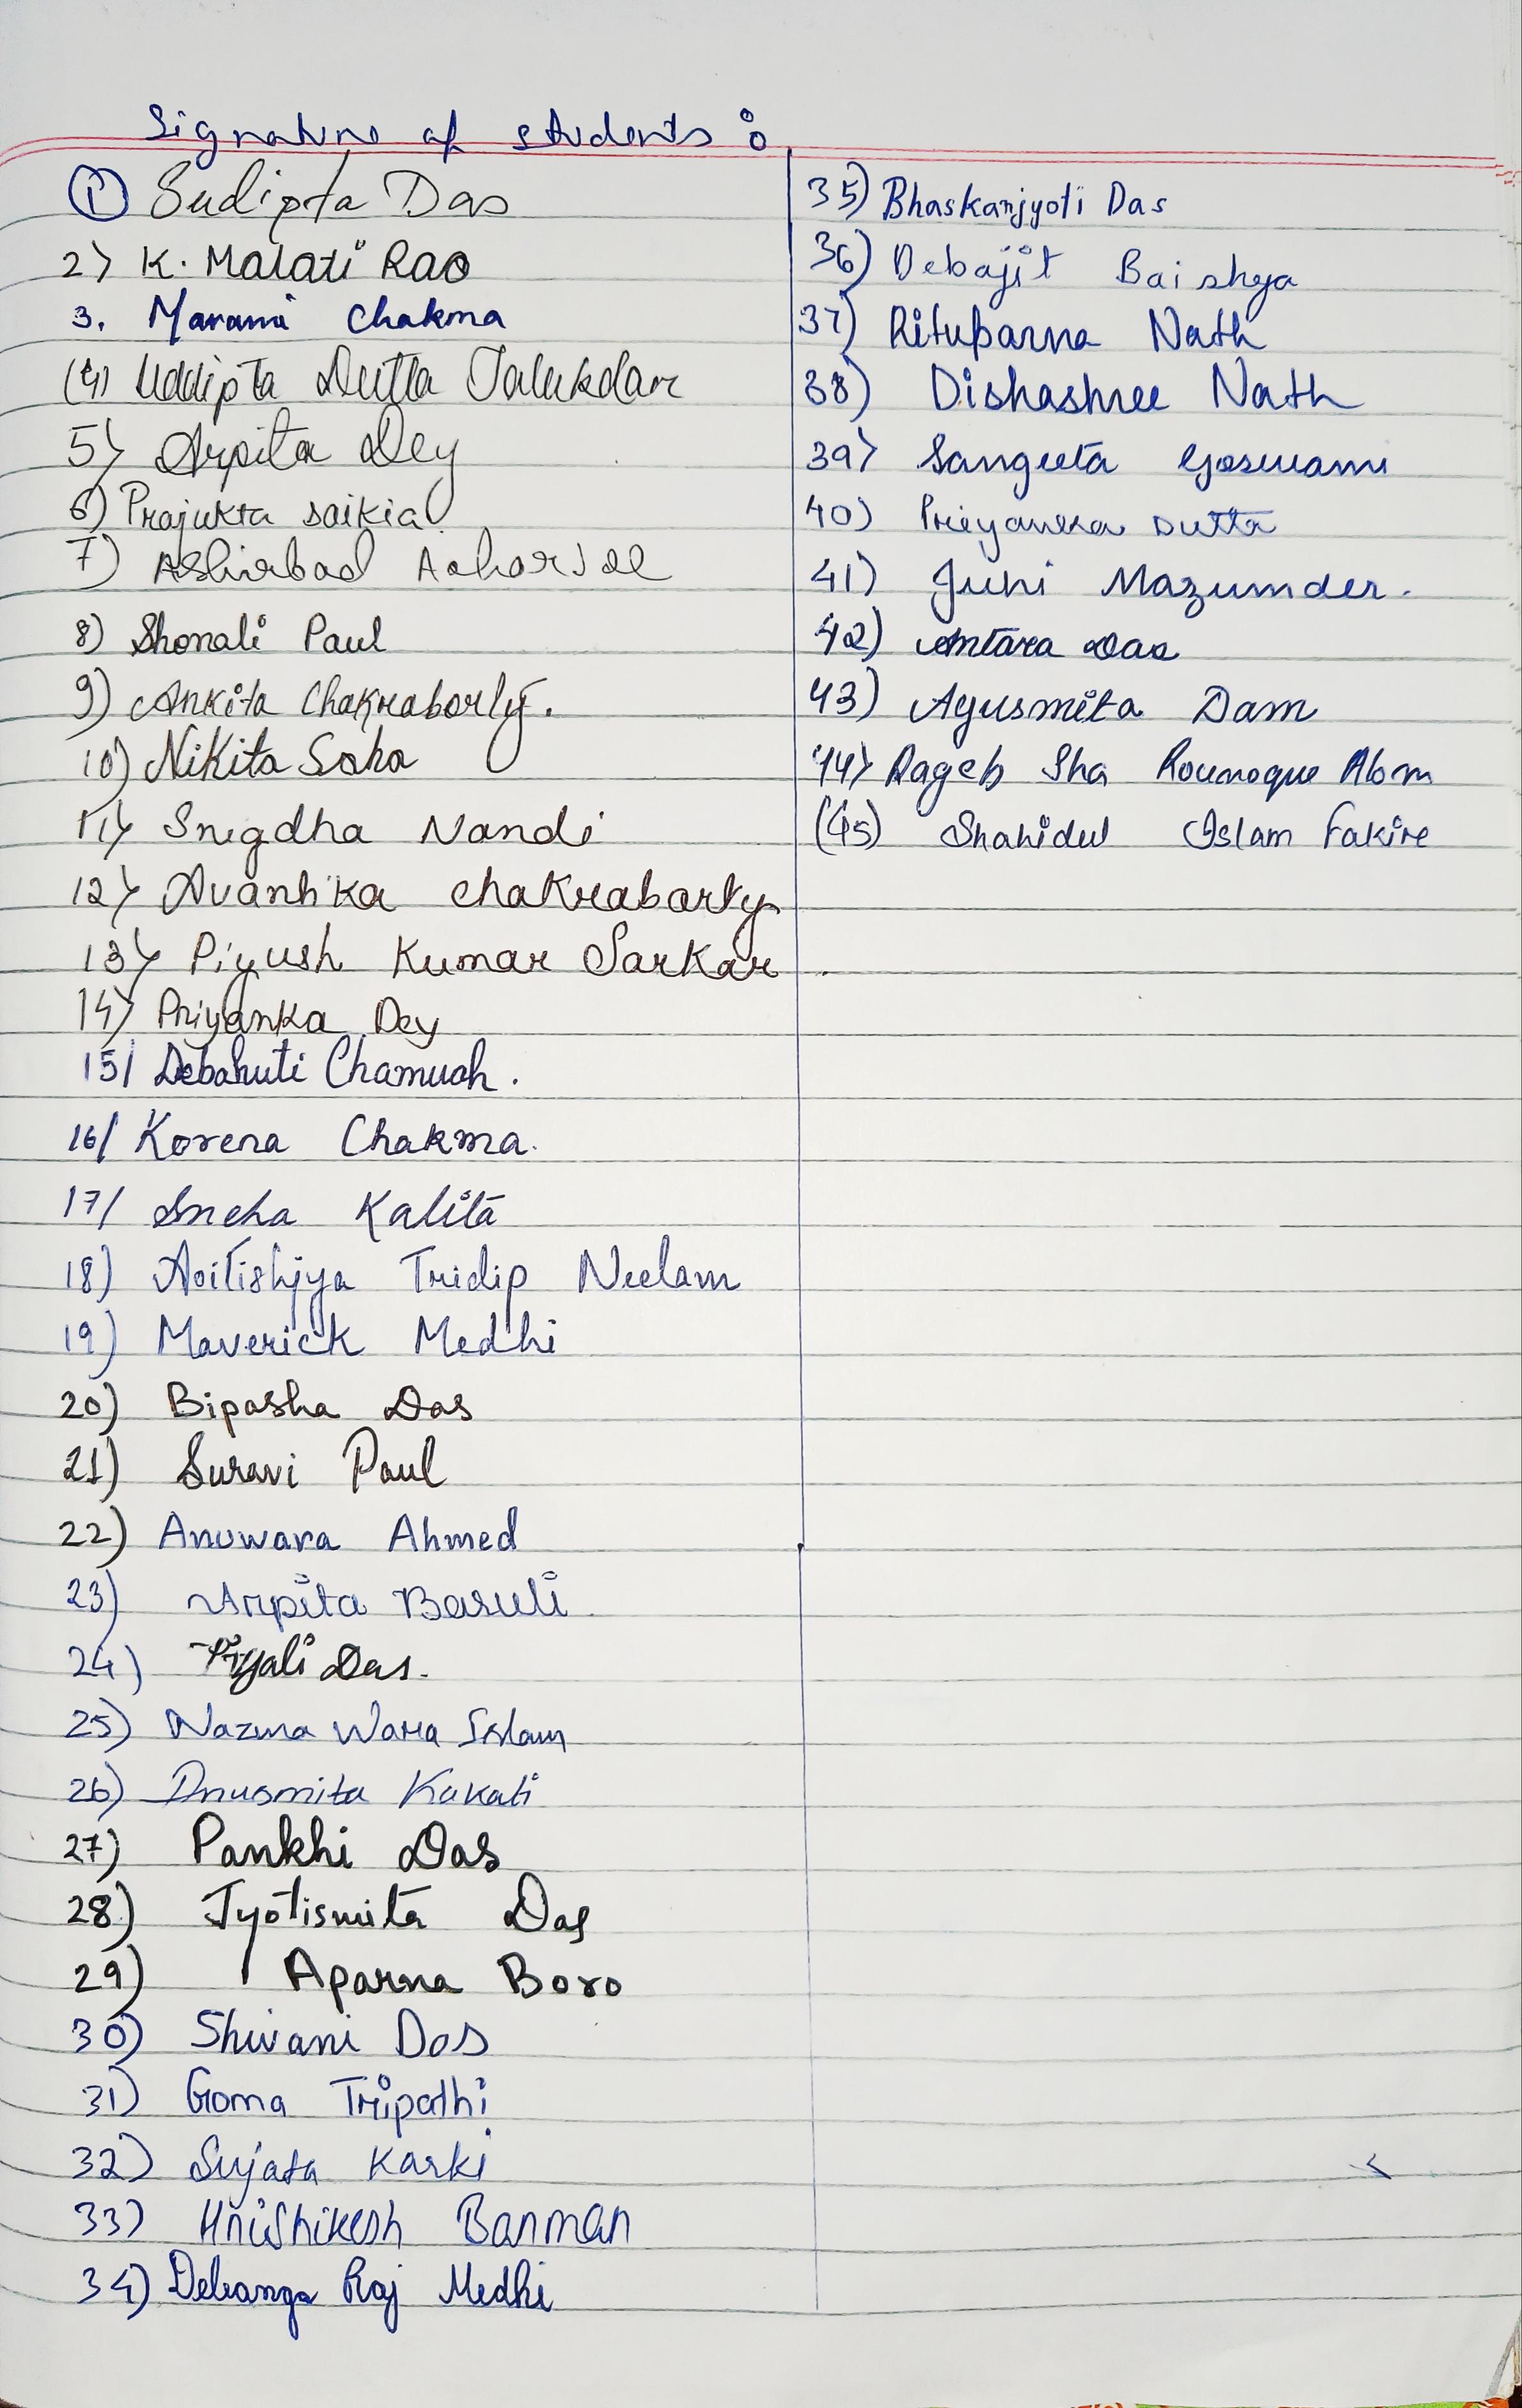 Signature of students :
① Sudipta Das
2) K. Malati Rao
3. Marami Chakma
(4) Uddipta Dutta Talukdar
5) Arpita Dey
6) Prajukta saikia
7) Ashirbad Acharjee
8) Shonali Paul
9) Ankita Chakraborty.
10) Nikita Saha
11) Snigdha Nandi
12) Avantika Chakraborty
13) Piyush Kumar Sarkar
14) Priyanka Dey
15/ Debahuti Chamuah.
16/ Korena Chakma.
17/ Sneha Kalita
18) Tridip Neelam
19) Maverick Medhi
20) Bipasha Das
21) Suravi Paul
22) Anuwara Ahmed
23) Arpita Baruli
24) Piyali Das.
25) Nazma Wara Islam
26) Anusmita Kakati
27) Pankhi Das
28) Jyotismita Das
29) Aparna Boro
30) Shivani Das
31) Goma Tripathi
32) Sujata Karki
33) Hrishikesh Barman
34) Debanga Raj Medhi
35) Bhaskarjyoti Das
36) Debajit Baishya
37) Rituparna Nath
38) Dishashree Nath
39) Sangeeta Goswami
40) Priyanka Dutta
41) Juhi Mazumder.
42) Antara Das
43) Ayusmita Dam
44) Rageb Sha Alom
(45) Shahidul Islam Fakir